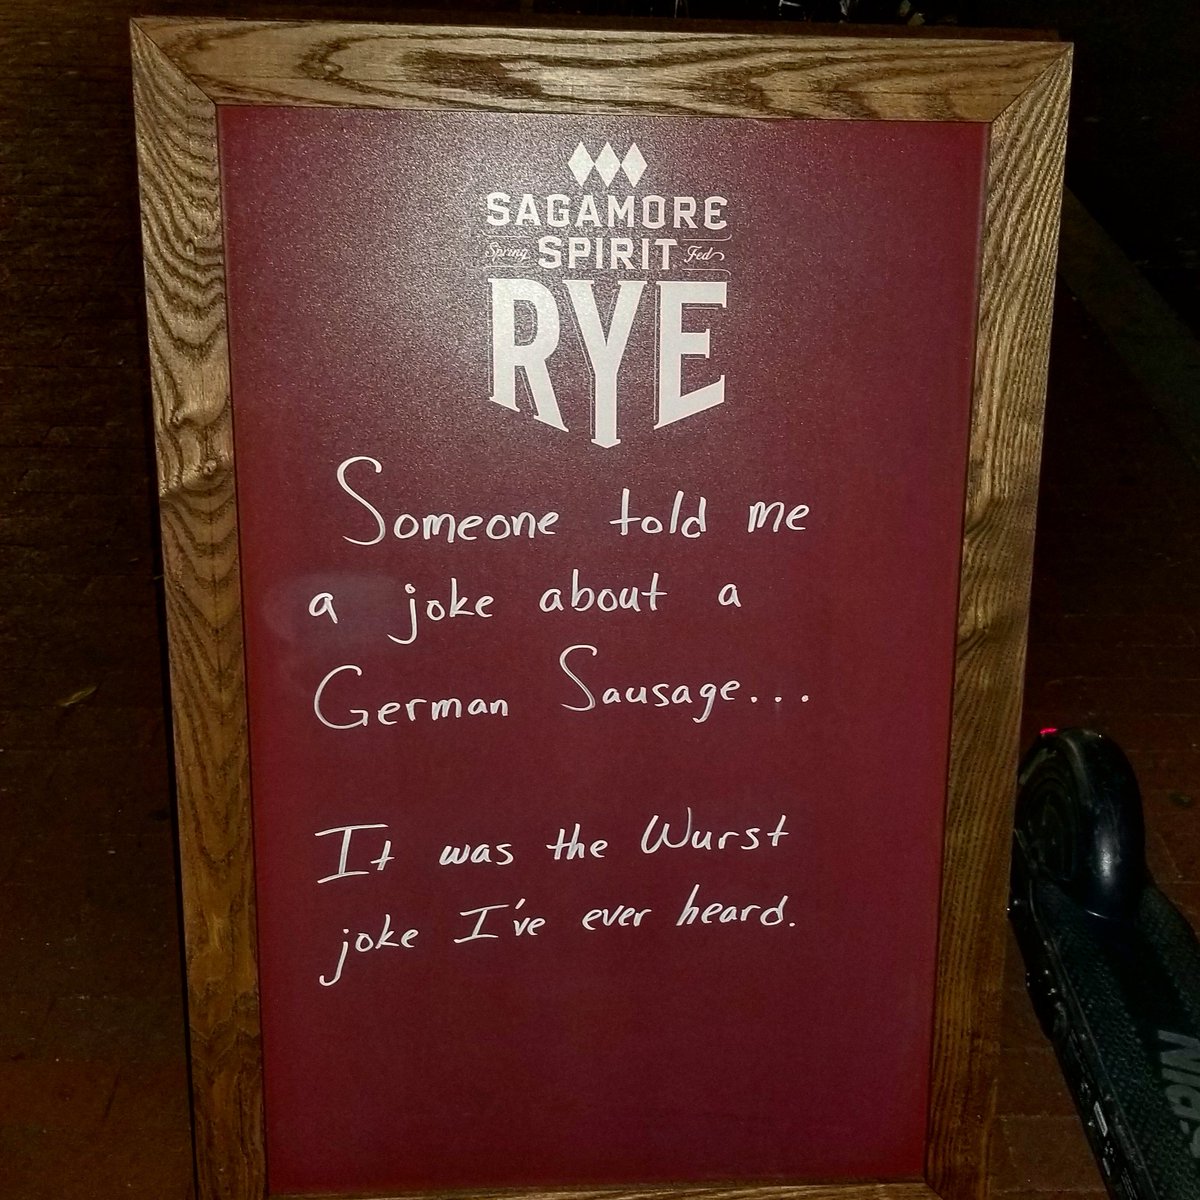 SAGAMORE
Spring SPIRIT Fed
RYE
Someone told me
a joke about a
German Sausage...
It was the Wurst
joke I've ever heard.